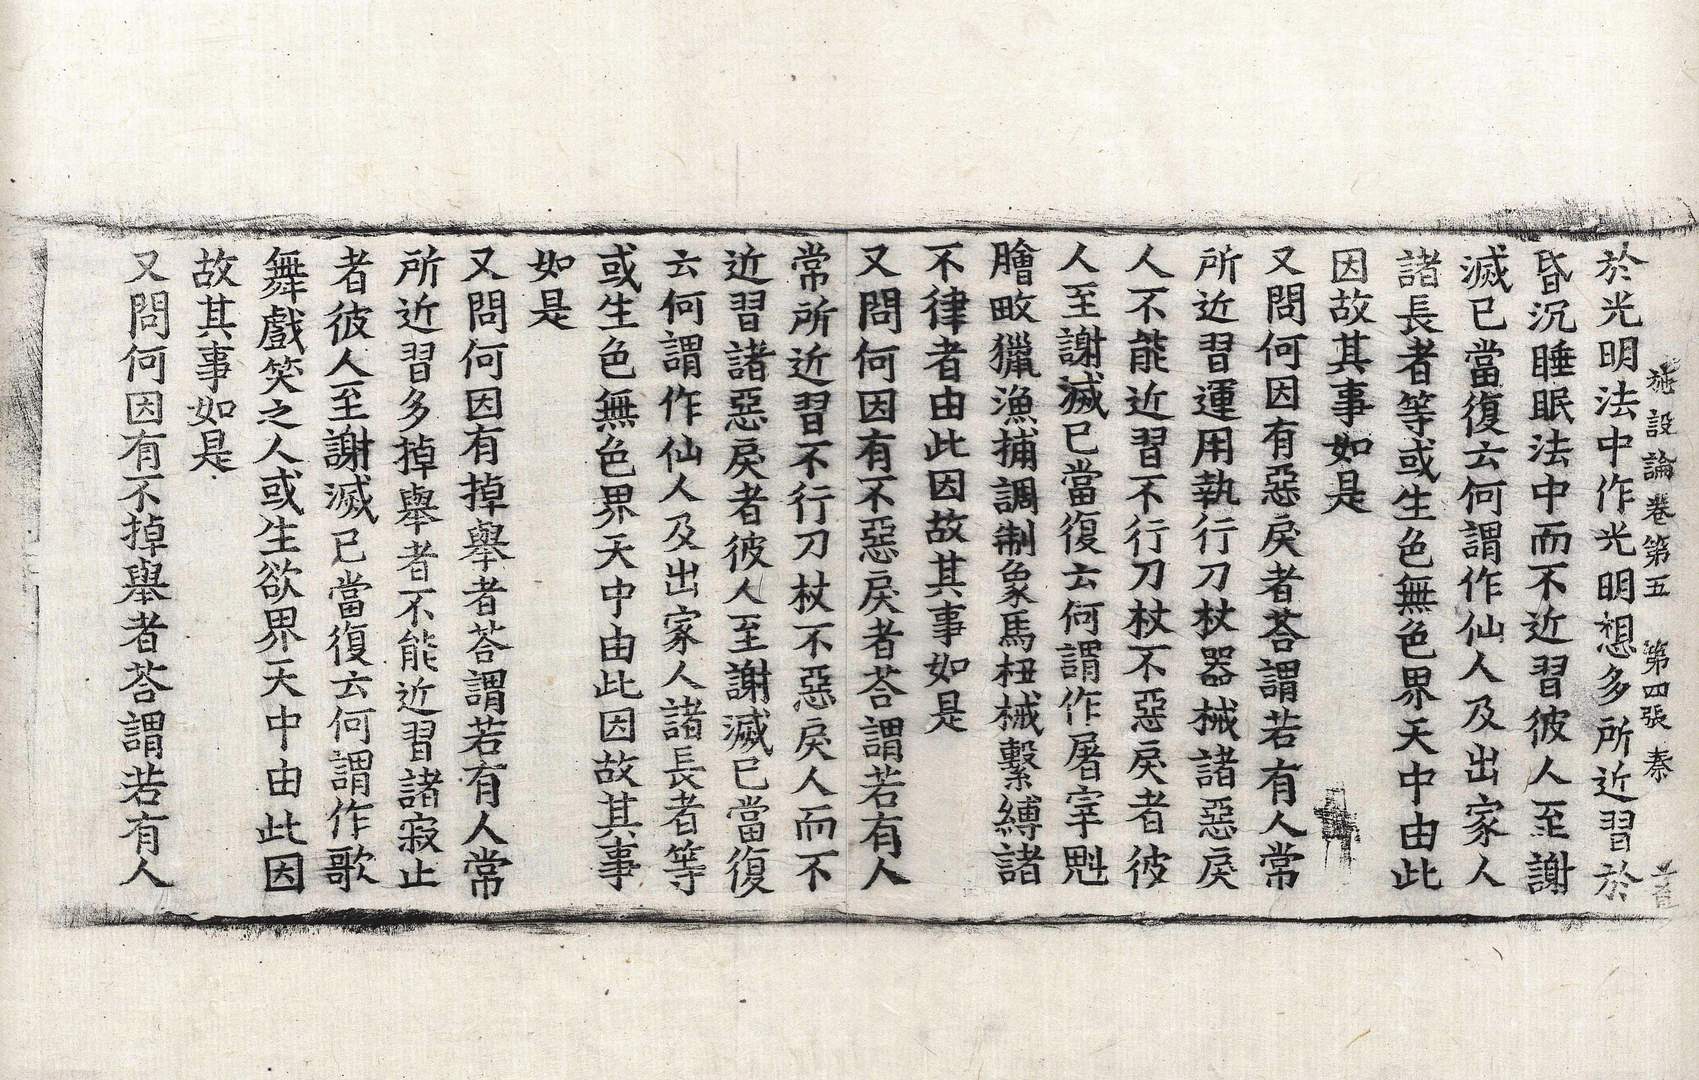 施設論卷第五 第四張 秦
於光明法中作光明想多所近習於
昏沉睡眠法中而不近習彼人至謝
滅已當復云何謂作仙人及出家人
諸長者等或生色無色界天中由此
因故其事如是
又問何因有惡戾者荅謂若有人常
所近習運用執行刀杖器械諸惡戾
人不能近習不行刀杖不惡戾者彼
人至謝滅已當復云何謂作屠宰魁
膾畋獵漁捕調制象馬杻械繫縛諸
不律者由此因故其事如是
又問何因有不惡戾者荅謂若有人
常所近習不行刀杖不惡戾人而不
近習諸惡戾者彼人至謝滅已當復
云何謂作仙人及出家人諸長者等
或生色無色界天中由此因故其事
如是
又問何因有掉舉者荅謂若有人常
所近習多掉舉者不能近習諸寂止
者彼人至謝滅已當復云何謂作歌
舞戲笑之人或生欲界天中由此因
故其事如是
又問何因有不掉舉者荅謂若有人